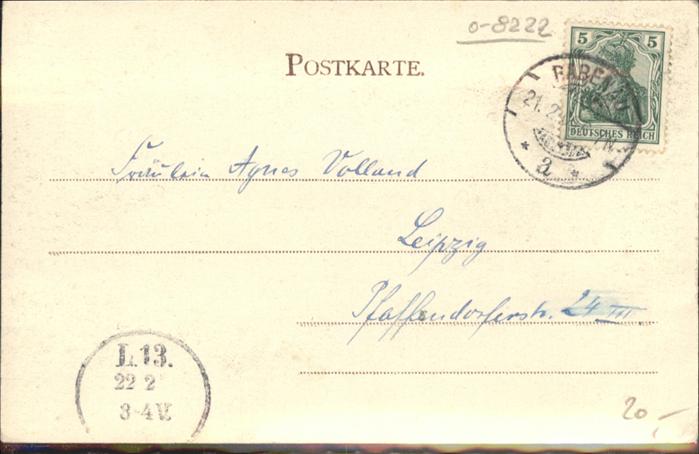 o-8222
5 5
POSTKARTE.
DEUTSCHES REICH
21. 2
a
Fräulein Agnes Volland
Leipzig
Pfaffendorferstr. 24 III
L.13.
22 2
3-4V.
20,-